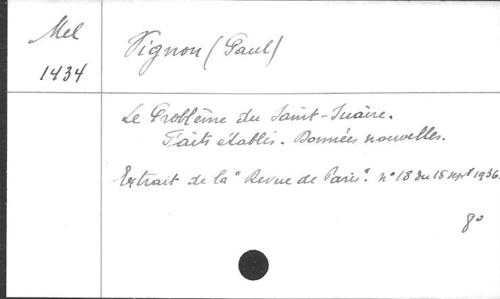 Mel
1434
Vignon (Paul)
Le Problème du Saint-Suaire.
Faits établis. Données nouvelles.
Extrait de la "Revue de Paris". n° 18 du 15 sept 1936.
8°